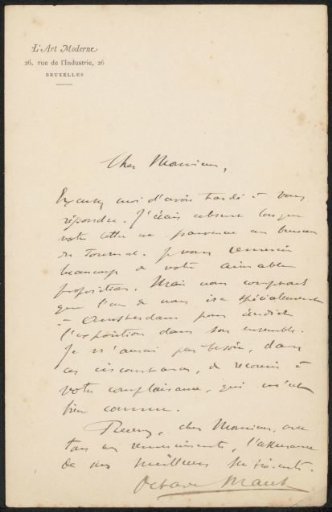 L'Art Moderne
26, rue de l'Industrie, 26
BRUXELLES
Cher Monsieur,
Excusez moi d'avoir tardé à vous
répondre. J'étais absent lorsque
votre lettre est parvenue au bureau
du Journal. Je vous remercie
beaucoup de votre aimable
proposition. Mais nous comptons
que l'un de nous ira spécialement
à Amsterdam pour étudier
l'exposition dans son ensemble.
Je n'aurai pas besoin, dans
ces circonstances, de recourir à
votre complaisance, qui m'est
bien connue.
Recevez, cher Monsieur, avec
tous mes remerciements, l'assurance
de mes meilleurs sentiments.
Octave Maus